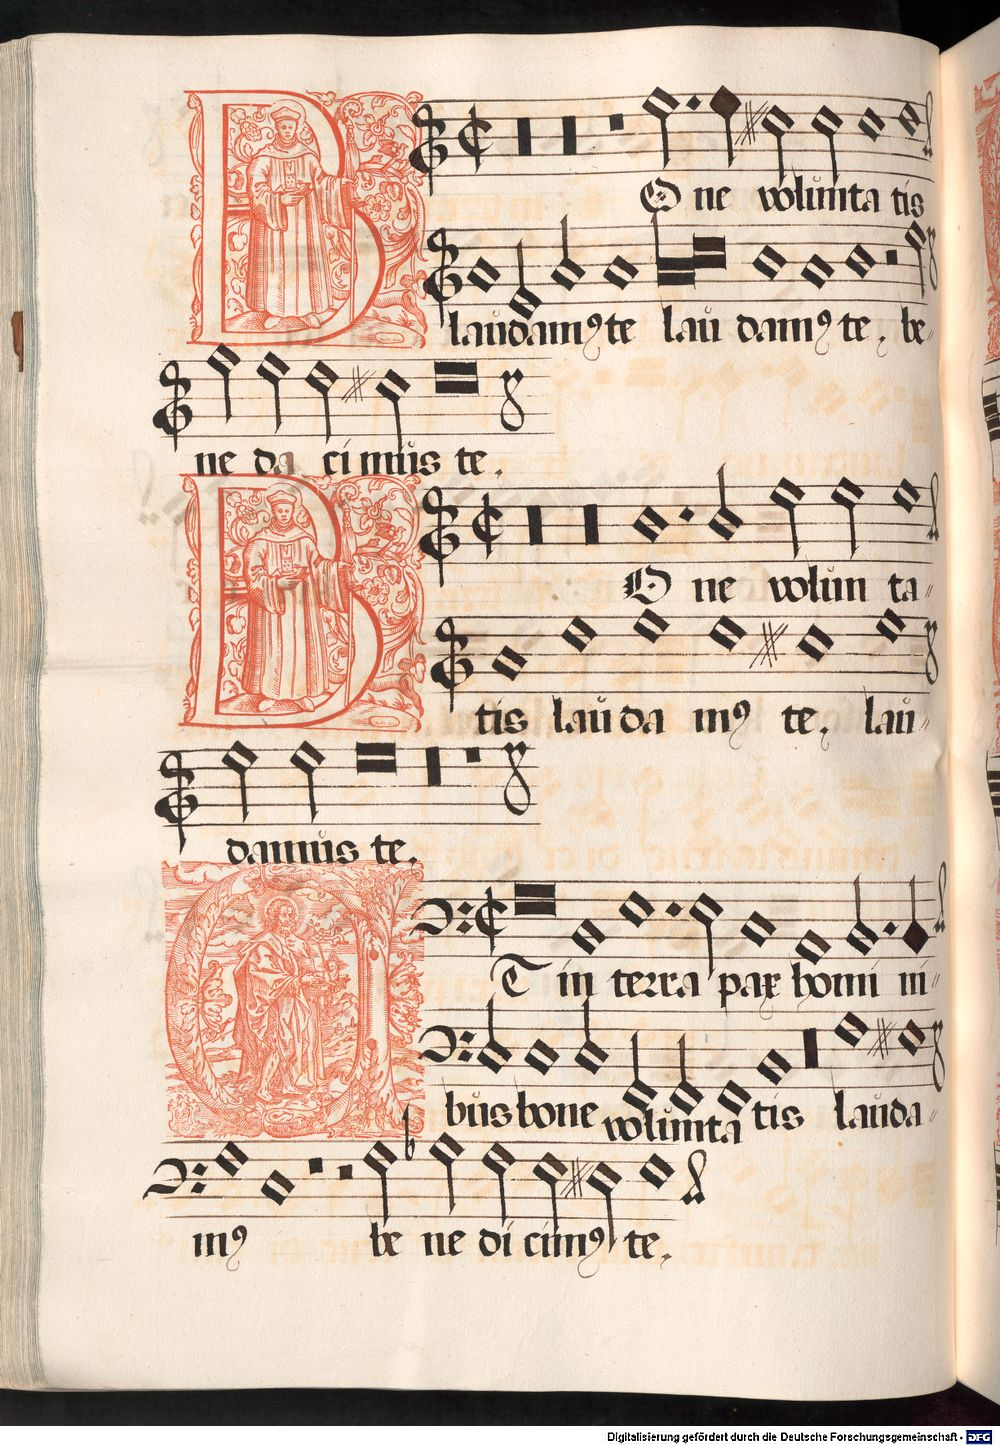 BO ne volunta tis
laudamꝰ te lau damꝰ te, be-
ne da ci mus te,
BO ne volun ta-
tis lau da mꝰ te, lau-
damus te,
ET in terra pax homi ni-
bus bone volunta tis lauda-
mꝰ be ne di cimꝰ te,
Digitalisierung gefördert durch die Deutsche Forschungsgemeinschaft - DFG